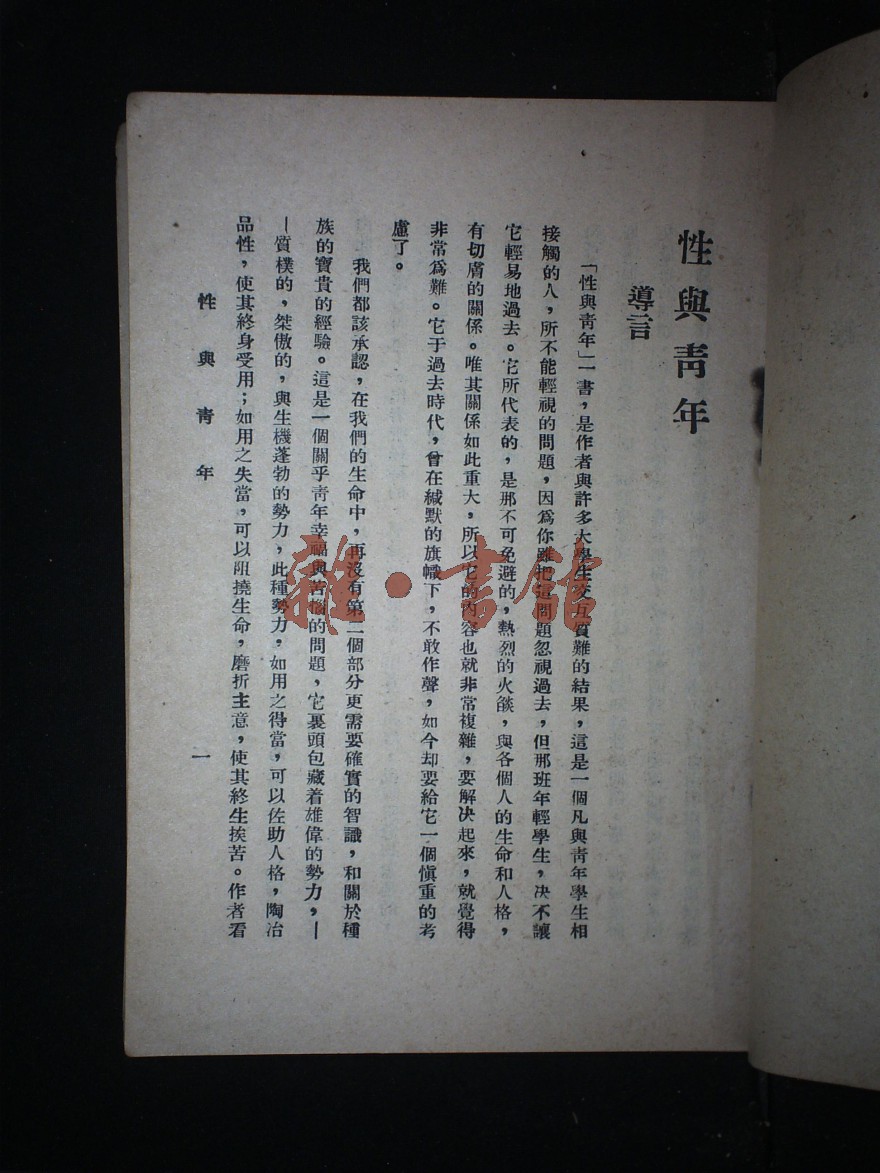 性與青年
導言
「性與青年」一書，是作者與許多大學生交互質難的結果，這是一個凡與青年學生相
接觸的人，所不能輕視的問題，因爲你雖把這問題忽視過去，但那班年輕學生，決不讓
它輕易地過去。它所代表的，是那不可免避的，熱烈的火燄，與各個人的生命和人格，
有切膚的關係。唯其關係如此重大，所以它的內容也就非常複雜，要解决起來，就覺得
非常爲難。它于過去時代，曾在緘默的旗幟下，不敢作聲，如今却要給它一個愼重的考
慮了。
我們都該承認，在我們的生命中，再沒有第二個部分更需要確實的智識，和關於種
族的寶貴的經驗。這是一個關乎青年幸福與苦惱的問題，它裏頭包藏着雄偉的勢力，—
—質樸的，桀傲的，與生機蓬勃的勢力，此種勢力，如用之得當，可以佐助人格，陶冶
品性，使其終身受用；如用之失當，可以阻撓生命，磨折主意，使其終生挨苦。作者看
性與青年
一
雜·書館